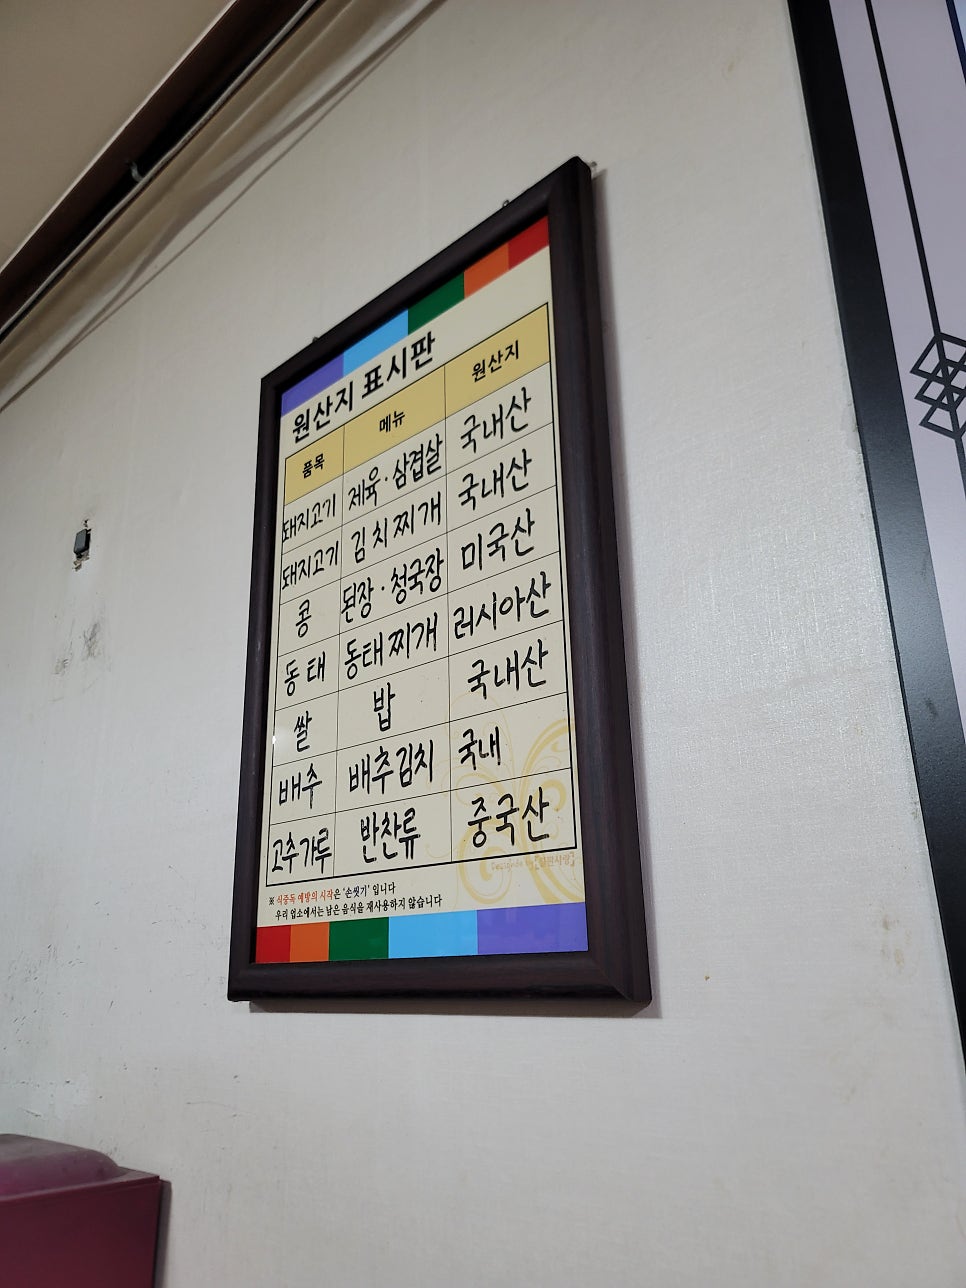 원산지 표시판
품목 메뉴 원산지
돼지고기 제육·삼겹살 국내산
돼지고기 김치찌개 국내산
콩 된장·청국장 미국산
동태 동태찌개 러시아산
쌀 밥 국내산
배추 배추김치 국내
고추가루 반찬류 중국산
※ 식중독 예방의 시작은 '손씻기' 입니다
우리 업소에서는 남은 음식을 재사용하지 않습니다